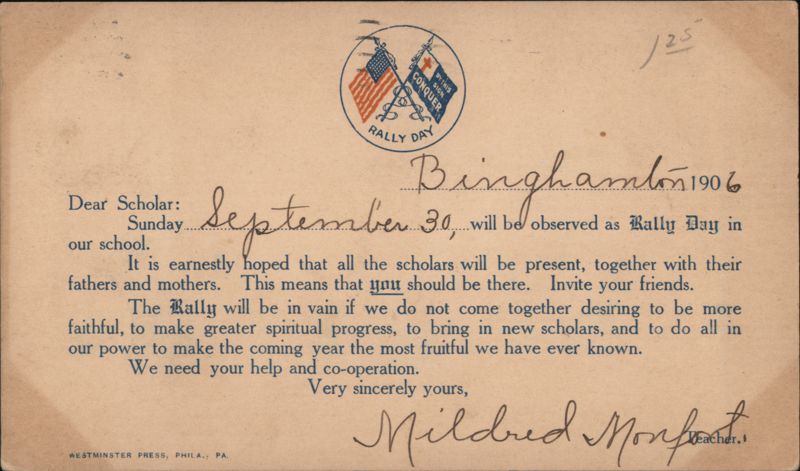 1 25
BY THIS
SIGN
CONQUER
RALLY DAY
Binghamton 1906
Dear Scholar:
Sunday September 30, will be observed as Rally Day in
our school.
It is earnestly hoped that all the scholars will be present, together with their
fathers and mothers. This means that you should be there. Invite your friends.
The Rally will be in vain if we do not come together desiring to be more
faithful, to make greater spiritual progress, to bring in new scholars, and to do all in
our power to make the coming year the most fruitful we have ever known.
We need your help and co-operation.
Very sincerely yours,
Mildred Monfort.
Teacher.
WESTMINSTER PRESS, PHILA., PA.